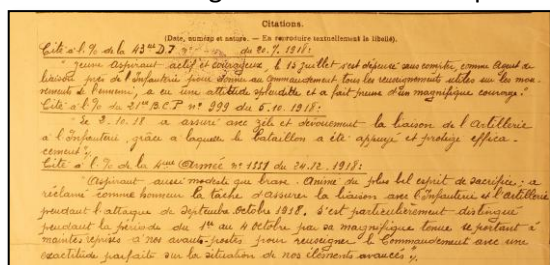 Citations.
(Date, numéro et nature. — En reproduire textuellement le libellé).
Cité à l'O/ de la 43me D.I. du 20.7.1918:
"Jeune Aspirant actif et courageux, le 15 juillet s'est dépensé sans compter, comme Agent de
liaison près de l'Infanterie pour donner au commandement tous les renseignements utiles sur les mou-
vements de l'ennemi, a eu une attitude splendide et a fait preuve d'un magnifique courage."
Cité à l'O/ du 21me B.C.P n° 399 du 5.10.1918:
"Le 3.10.18 a assuré avec zèle et dévouement la liaison de l'Artillerie
à l'Infanterie, grâce à laquelle le Bataillon a été appuyé et protégé effica-
cement",
Cité à l'O/ de la 4me Armée n° 1559 du 24.12.1918:
"Aspirant aussi modeste que brave. Animé du plus bel esprit de sacrifice; a
réclamé comme honneur la tâche d'assurer la liaison avec l'Infanterie et l'artillerie
pendant l'attaque de Septembre Octobre 1918. S'est particulièrement distingué
pendant la période du 1er au 4 octobre par sa magnifique tenue se portant à
maintes reprises à nos avants-postes pour renseigner le Commandement avec une
exactitude parfaite sur la situation de nos éléments avancés",